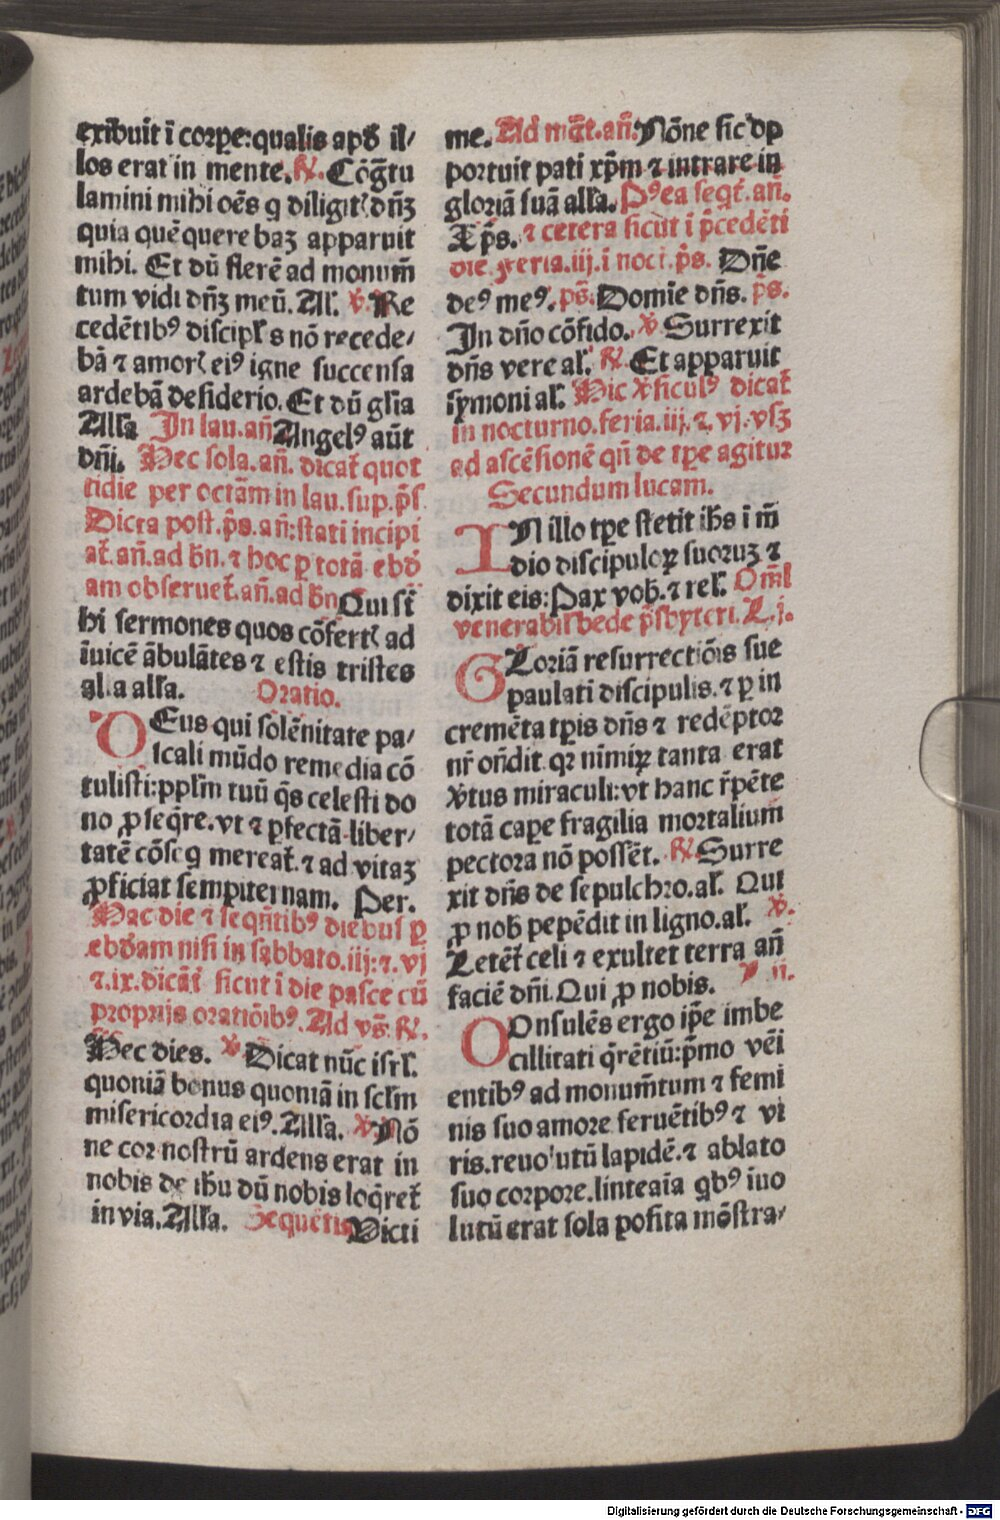 exibuit ī corꝑe:qualis apꝺ̄ il⸗
los erat in mente. ℟. Cōg̃tu
lamini mihi oēs q diligit{ dn̄ꝫ
quia quē quere baꝫ apparuit
mihi. Et dū flerē ad monum̄
tum vidi dn̄ꝫ meū. Al. ℣. Re
cedētibꝰ discipl's nō recede⸗
bā ⁊ amor{ eiꝰ igne succensa
ardebā desiderio. Et dū gl'ia
All'a In lau. an̄ Angelꝰ aūt
dn̄i. Hec sola. an̄. dicat̄ quot
tidie per octām in lau. sup. p̄s
Dicta post. p̄s. an̄:stati incipi
at̄. an̄. ad bn̄. ⁊ hoc ꝑ totā ebꝺ̄
am obseruet̄. an̄. ad bn̄ Qui st̄
hi sermones quos cōfert{ ad
īuicē ābulātes ⁊ estis tristes
al'a all'a. Oratio.
DEus qui solēnitate pa⸗
scali mūdo remedia cō
tulisti:ppl'm tuū q̄s celesti do
no ꝓseq̄re. vt ⁊ ꝑfectā liber⸗
tatē cōseq mereat̄. ⁊ ad vitaꝫ
ꝓficiat sempiternam. Per.
Hac die ⁊ seqn̄tibꝰ diebus ꝑ
ebꝺ̄am nisi in sabbato. iij: ⁊. vj
⁊. ix. dicāt̄ sicut ī die pasce cū
proprijs oratiōibꝰ. Ad vs̄. ℟.
Hec dies. ℣ Dicat nūc isrl'.
quoniā bonus quoniā in scl'm
misericordia eiꝰ. All'a. ℣. Nō
ne cor nostrū ardens erat in
nobis de ihu dū nobis loq̄ret̄
in via. All'a. Sequētia Victi
me. Ad m̄ct̄. an̄. Nōne sic op
portuit pati xp̄m ⁊ intrare in
gloriā suā all'a. Pꝰea seqt̄. an̄.
Xp̄s. ⁊ cetera sicut ī p̄cedēti
die. feria. iij. ī noct. p̄s. Dn̄e
deꝰ meꝰ. ps̄. Domīe dn̄s. p̄s.
In dn̄o cōfido. ℣ Surrexit
dn̄s vere al'. ℟ Et apparuit
symoni al'. Hic ℣siculꝰ dicat̄
in nocturno. feria. iij. ⁊. vj. vsꝫ
ad ascēsionē qn̄ de tꝑe agitur
Secundum lucam.
IN illo tꝑe stetit ihs ī m̄
dio discipuloꝝ suoruꝫ ⁊
dixit eis: Pax vob̄. ⁊ rel'. Oml̄
venerabil' bede p̄sbyteri. L. j.
GLoriā resurrectiōis sue
paulati discipulis. ⁊ ꝑ in
cremēta tꝑis dn̄s ⁊ redēptor
nr̄ on̄dit. qꝛ nīmiꝝ tanta erat
℣tus miraculi: vt hanc r̄pēte
totā caꝑe fragilia mortalium̄
pectora nō possēt. ℟. Surre
xit dn̄s de sepulchro. al'. Qui
ꝓ nob̄ pepēdit in ligno. al'. ℣.
Letēt̄ celi ⁊ exultet terra an̄
faciē dn̄i. Qui ꝓ nobis. L ij.
COnsulēs ergo iꝑe imbe
cillitati q̄rētiū: p̄mo vēi
entibꝰ ad monum̄tum ⁊ femi
nis suo amore feruētibꝰ ⁊ vi
ris. reuolutū lapidē. ⁊ ablato
suo corpore. linteaīa qbꝰ īuo
lutū erat sola posita mōstra⸗
Digitalisierung gefördert durch die Deutsche Forschungsgemeinschaft - DFG